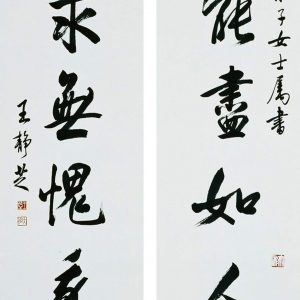 子女士屬書
能盡如人
求無愧
王靜芝